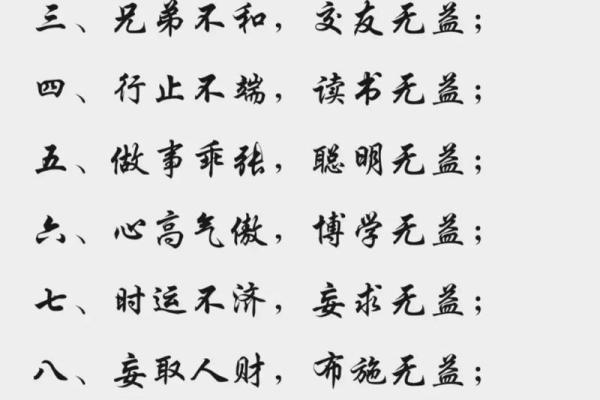 三、兄弟不和，交友无益；
四、行止不端，读书无益；
五、做事乖张，聪明无益；
六、心高气傲，博学无益；
七、时运不济，妄求无益；
八、妄取人财，布施无益；